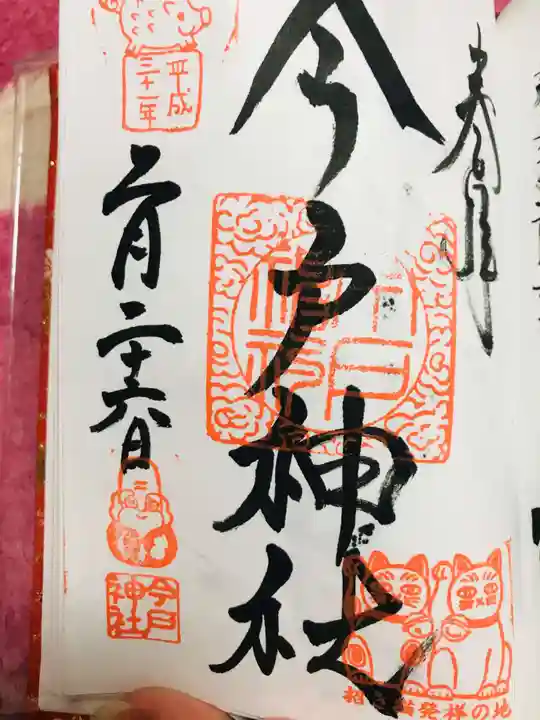 奉拝
今戸神社
今戸神社
招き猫発祥の地
平成
三十一年
二月二十六日
今戸
神社